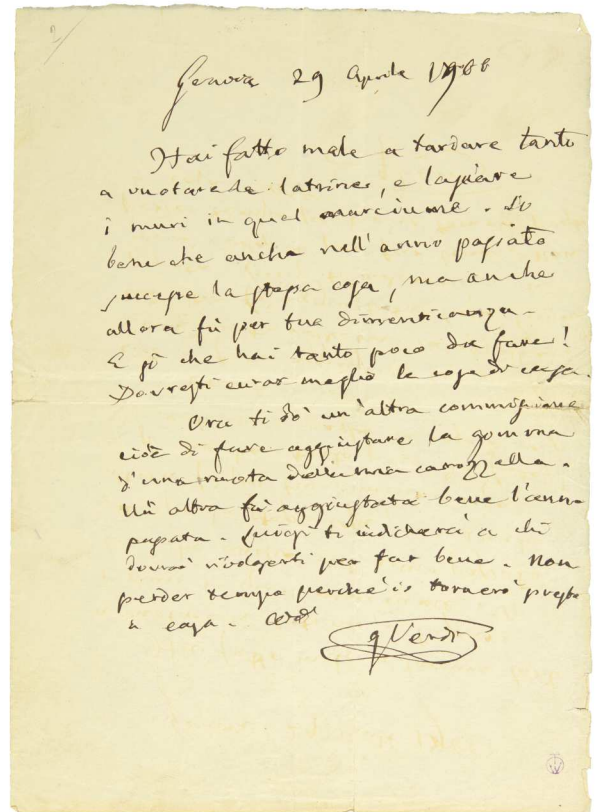 Genova 29 Aprile 1900
Hai fatto male a tardare tanto
a vuotare le latrine, e lasciare
i muri in quel marciume. So
bene che anche nell'anno passato
succese la stessa cosa, ma anche
allora fù per tua dimenticanza.
E sì che hai tanto poco da fare!
Dovresti curar meglio le cose di casa.
Ora ti dò un'altra commissione
cioè di fare aggiustare la gomma
d'una ruota della mia carozzella.
Un altra fù aggiustata bene l'anno
passato. ti indicherà a chi
dovrai rivolgerti per far bene. Non
perder tempo perchè io tornerò presto
a casa.
G Verdi